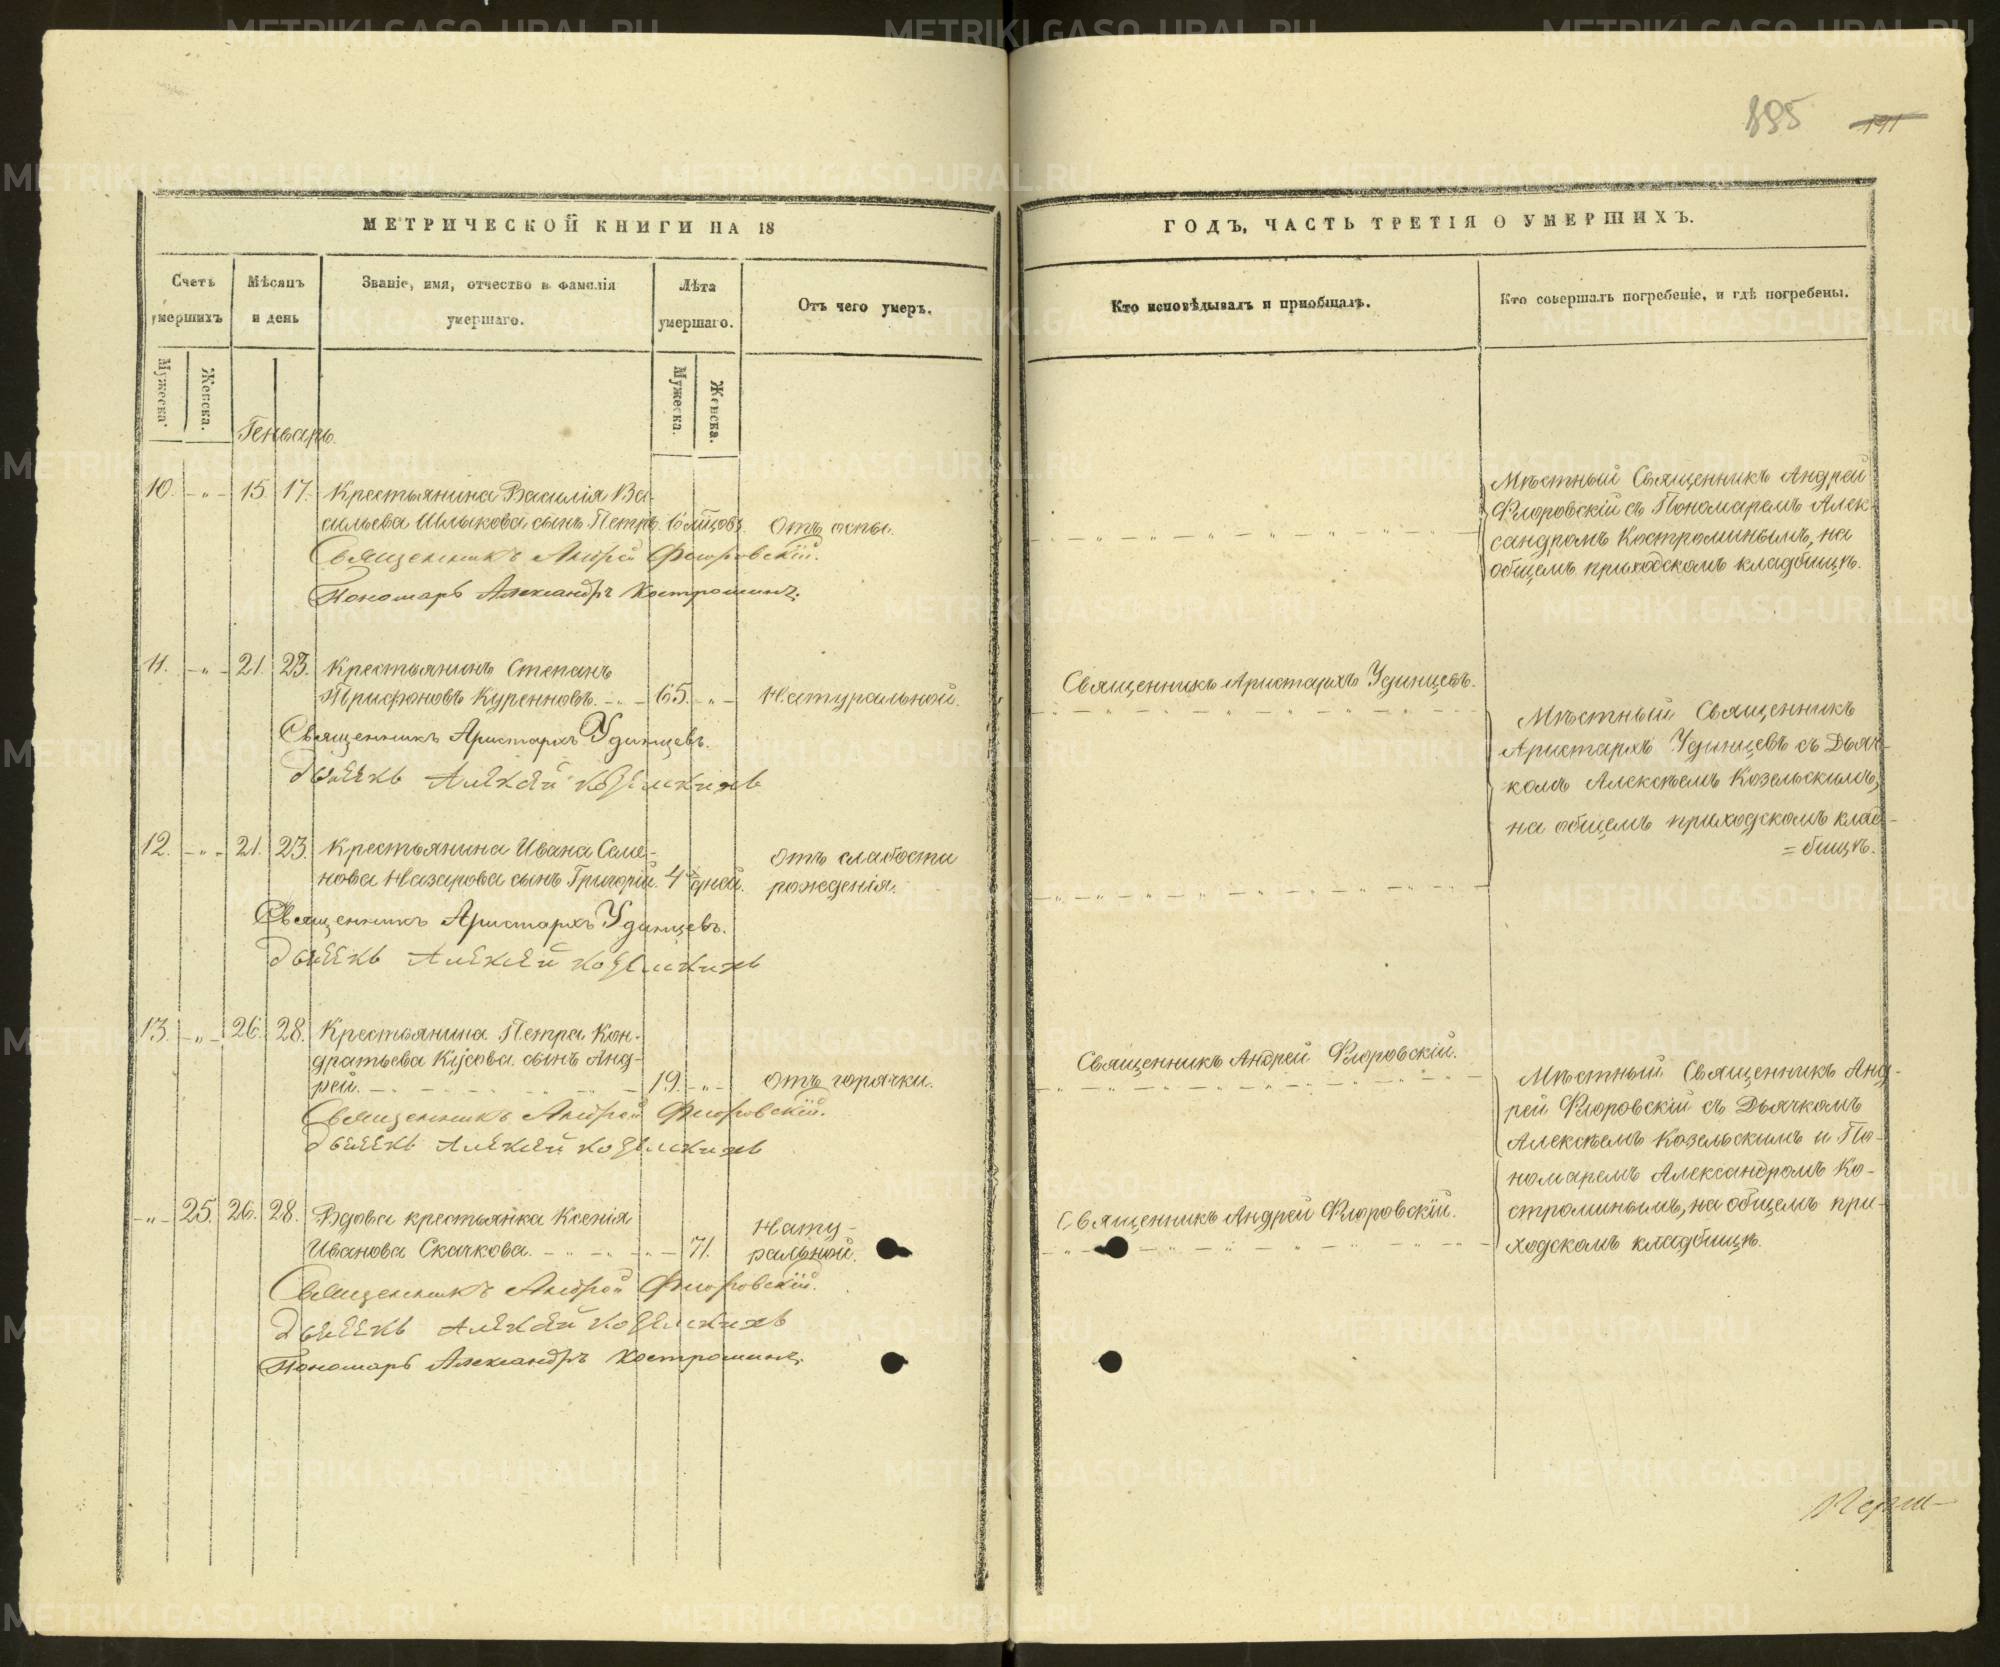 195 191
МЕТРИЧЕСКОЙ КНИГИ НА 18
ГОДЪ, ЧАСТЬ ТРЕТІЯ О УМЕРШИХЪ.
Счетъ умершихъ
Мѣсяцъ и день
Званіе, имя, отчество и фамилія умершаго.
Лѣта умершаго.
Отъ чего умеръ.
Кто исповѣдывалъ и пріобщалъ.
Кто совершалъ погребеніе, и гдѣ погребены.
Мужеска.
Женска.
Мужеска.
Женска.
Генварь.
10. - " - 15. 17. Крестьянина Василія Ва-
сильева Шлыкова сынъ Петръ. 6 м҃цовъ. Отъ оспы.
Священникъ Андрей Флоровскій.
Пономарь Александръ Костроминъ.
Мѣстный Священникъ Андрей
Флоровскій съ Пономаремъ Алек-
сандромъ Костроминымъ, на
общемъ приходскомъ кладбищѣ.
11. - " - 21. 23. Крестьянинъ Степанъ
Трифоновъ Куренновъ. - " - 65. - " - Натуральной.
Священникъ Аристархъ Удинцевъ.
Дьячекъ Алексей Козельскихъ
Священникъ Аристархъ Удинцевъ.
Мѣстный Священникъ
Аристархъ Удинцевъ съ Дьяч-
комъ Алексѣемъ Козельскимъ,
на общемъ приходскомъ клад-
=бищѣ.
12. - " - 21. 23. Крестьянина Ивана Семе-
нова Назарова сынъ Григорій. 4 дней.
отъ слабости
рожденія.
Священникъ Аристархъ Удинцевъ.
Дьячекъ Алексей Козельскихъ
13. - " - 26. 28. Крестьянина Петра Кон-
дратьева Кусова сынъ Анд-
рей. 19. - " - отъ горячки.
Священникъ Андрей Флоровскій.
Дьячекъ Алексей Козельскихъ
Священникъ Андрей Флоровскій.
Мѣстный Священникъ Анд-
рей Флоровскій съ Дьячкомъ
Алексѣемъ Козельскимъ и По-
номаремъ Александромъ Ко-
строминымъ, на общемъ при-
ходскомъ кладбищѣ.
- " - 25. 26. 28. Вдова крестьянка Ксенія
Иванова Скачкова. - " - 71.
Нату-
ральной.
Священникъ Андрей Флоровскій.
Дьячекъ Алексей Козельскихъ
Пономарь Александръ Костроминъ.
Священникъ Андрей Флоровскій.
METRIKI.GASO-URAL.RU